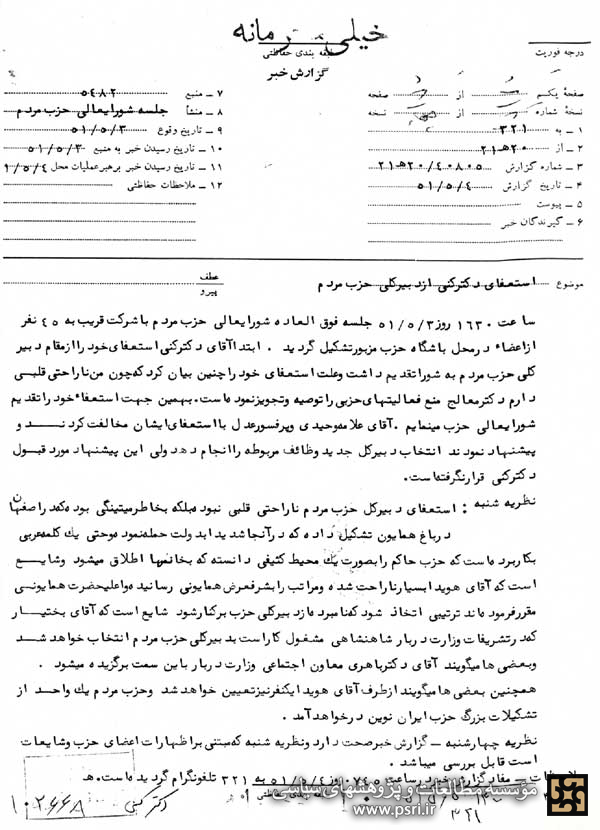 خیلی محرمانه
طبقه بندی حفاظتی
گزارش خبر
درجه فوریت
صفحه یکم از صفحه
نسخه شماره از نسخه
۱ ــ به ۳۲۱
۲ ــ از ۲۰هـ ۲۱
۳ ــ شماره گزارش ۲۰/۴۰۸۰۵هـ ۲۱
۴ ــ تاریخ گزارش ۵۱/۵/۴
۵ ــ پیوست
۶ ــ گیرندگان خبر
۷ ــ منبع ۵۴۸۲
۸ ــ منشأ جلسه شورایعالی حزب مردم
۹ ــ تاریخ وقوع ۵۱/۵/۳
۱۰ ــ تاریخ رسیدن خبر به منبع ۵۱/۵/۳
۱۱ ــ تاریخ رسیدن خبر برهبر عملیات محل ۱/۵/۴
۱۲ ــ ملاحظات حفاظتی
موضوع استعفای دکترکنی از دبیرکلی حزب مردم
عطف
پیرو
ساعت ۱۶۳۰ روز ۵۱/۵/۳ جلسه فوق العاده شورایعالی حزب مردم با شرکت قریب به ۴۵ نفر
از اعضاء در محل باشگاه حزب مزبور تشکیل گردید . ابتدا آقای دکترکنی استعفای خود را از مقام دبیر
کلی حزب مردم به شورا تقدیم داشت وعلت استعفای خود را چنین بیان کرد که چون من ناراحتی قلبی
دارم دکتر معالج منع فعالیتهای حزبی را توصیه و تجویز نموده است. بهمین جهت استعفاء خود را تقدیم
شورایعالی حزب مینمایم . آقای علامه وحیدی و پرفسور عدل با استعفای ایشان مخالفت کردند و
پیشنهاد نمودند انتخاب دبیرکل جدید وظائف مربوطه را انجام دهد ولی این پیشنهاد مورد قبول
دکترکنی قرار نگرفته است.
نظریه شنبه : استعفای دبیرکل حزب مردم ناراحتی قلبی نبوده بلکه بخاطر میتینگی بوده که در اصفهان
در باغ همایون تشکیل داده که در آنجا شدیدا بدولت حمله نموده وحتی یك کلمه عربی
بکار برده است که حزب حاکم را بصورت یك محیط کثیفی دانسته که بخانمها اطلاق میشود وشایع
است که آقای هویدا بسیار ناراحت شده و مراتب را بشرفعرض همایونی رسانیده واعلیحضرت همایونی
مقرر فرموده اند ترتیبی اتخاذ شود که نامبرده از دبیرکلی حزب برکنار شود شایع است که آقای بختیار
که در تشریفات وزارت دربار شاهنشاهی مشغول کار است بدبیرکلی حزب مردم انتخاب خواهد شد
وبعضی ها میگویند آقای دکتر باهری معاون اجتماعی وزارت دربار باین سمت برگزیده میشود .
همچنین بعضی ها میگویند از طرف آقای هویدا یکنفر نیز تعیین خواهد شد وحزب مردم یك واحد از
تشکیلات بزرگ حزب ایران نوین در خواهد آمد .
نظریه چهارشنبه ــ گزارش خبر صحت دارد ونظریه شنبه که مبتنی بر اظهارات اعضای حزب وشایعات
است قابل بررسی میباشد .
ملاحظات ــ مفاد گزارش خبر در ساعت ۰۷۴۵ روز ۵۱/۵/۴ به ۳۲۱ تلفونگرام گردیده است. هـ
طبقه بندی حفاظتی
موسسه مطالعات و پژوهشهای سیاسی
www.psri.ir
۱۰۲۶۶۸
دکتر کنی
۳۲۱